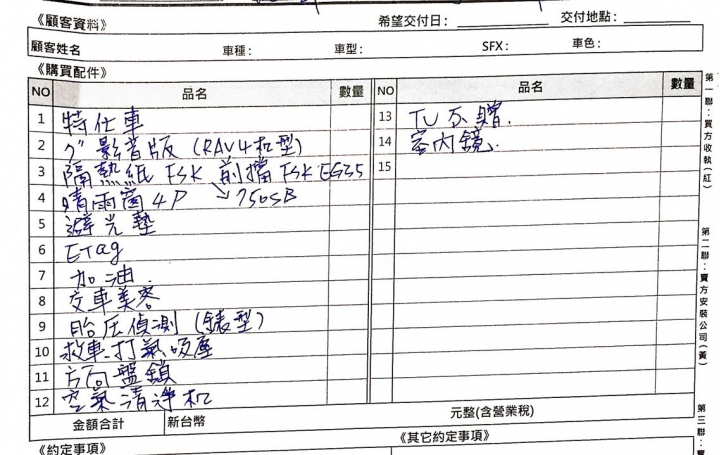 《顧客資料》 希望交付日： 交付地點：
顧客姓名 車種： 車型： SFX： 車色：
《購買配件》
NO 品名 數量 NO 品名 數量
1 特仕車
2 9" 影音版 (RAV4机型)
3 隔熱紙 FSK 前擋 FSK EG35
4 晴雨窗 4P ↘ 750SB
5 避光墊
6 ETag
7 加油.
8 交車美容
9 胎压偵測 (錶型)
10 救車.打氣吸塵
11 方向盤鎖
12 空氣清淨机
13 TU 不贈.
14 室內鏡.
15
金額合計 新台幣 元整(含營業稅)
《約定事項》 《其它約定事項》
第一聯：買方收執(紅)
第二聯：賣方安裝公司(黃)
第三聯：